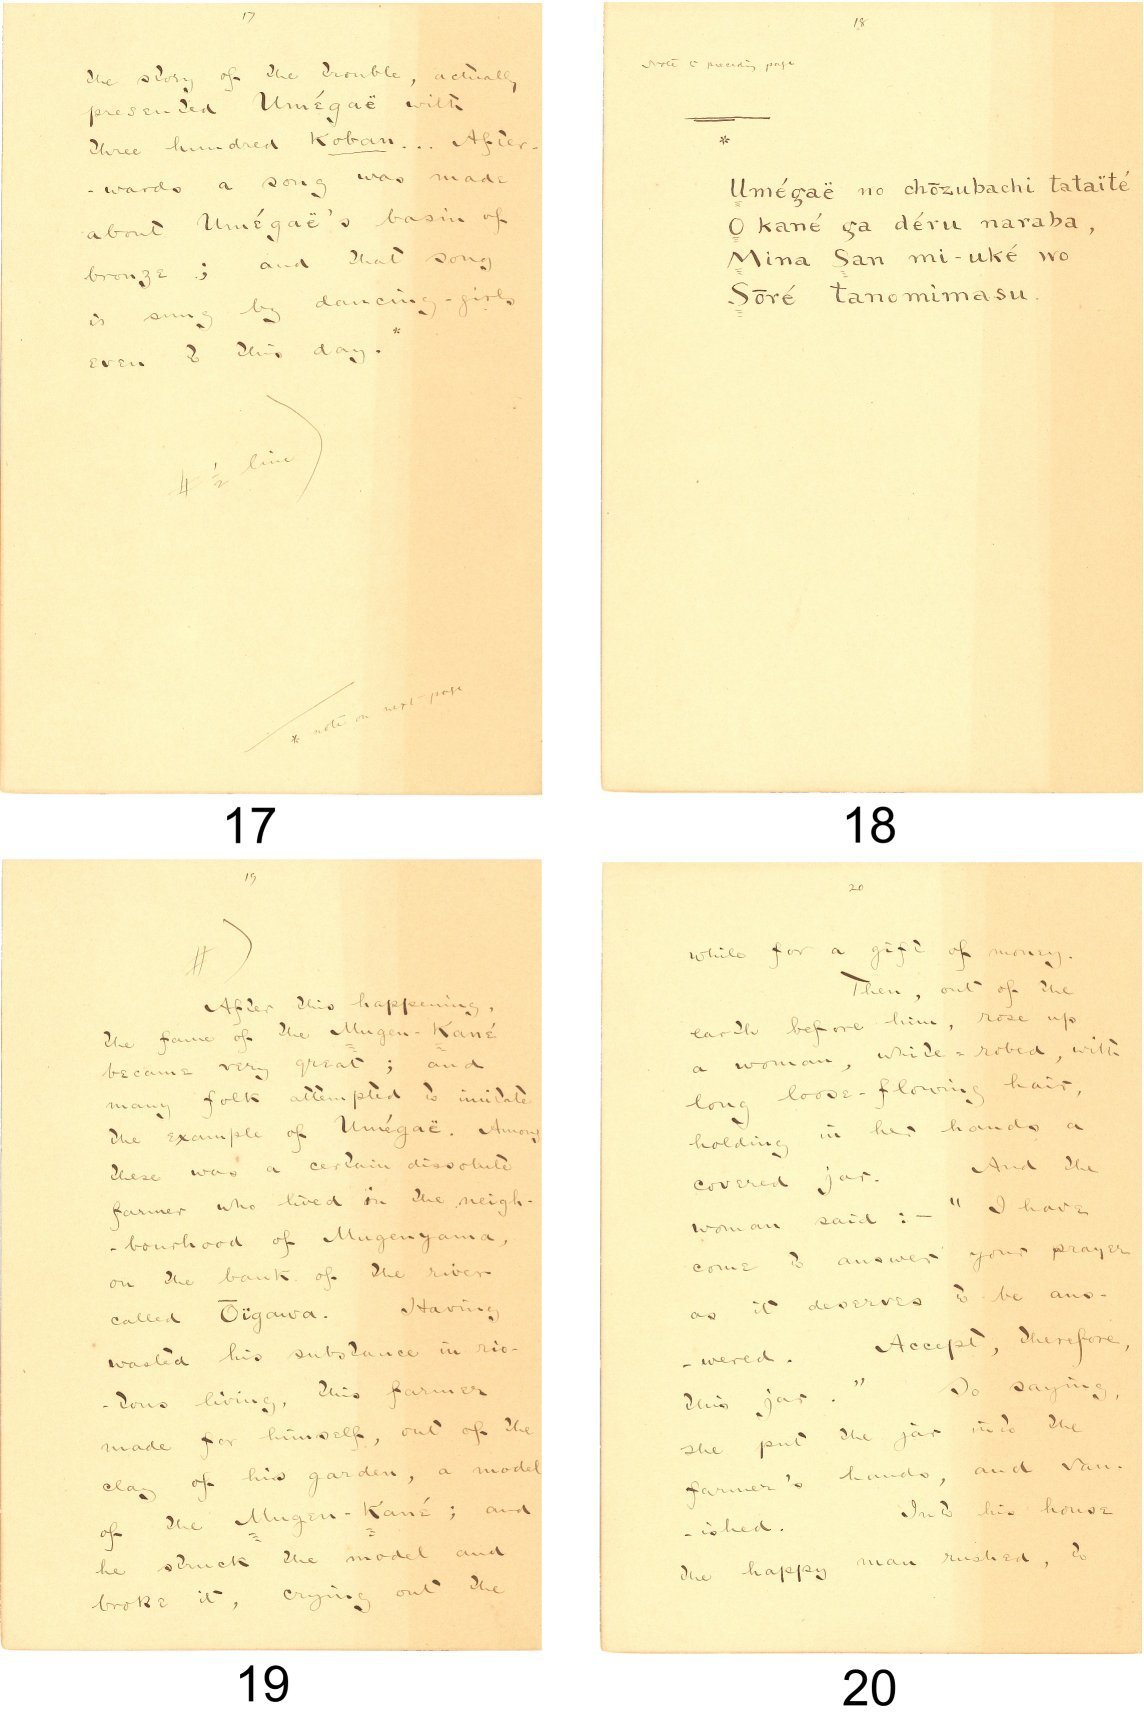 17
the story of the trouble, actually
presented Umégaë with
three hundred Koban... After-
-wards a song was made
about Umégaë's basin of
bronze ; and that song
is sung by dancing-girls
even to this day.*
4 1/2 line
* note on next page
17
18
Note to preceding page
*
Umégaë no chōzubachi tataïté
O kané ga déru naraba,
Mina San mi-uké wo
Sōré tanomimasu.
18
19
#
After this happening,
the fame of the Mugen-Kané
became very great ; and
many folk attempted to imitate
the example of Umégaë. Among
these was a certain dissolute
farmer who lived in the neigh-
-bourhood of Mugenyama,
on the bank of the river
called Ōïgawa. Having
wasted his substance in rio-
-tous living, this farmer
made for himself, out of the
clay of his garden, a model
of the Mugen-Kané ; and
he struck the model and
broke it, crying out the
19
20
while for a gift of money.
Then, out of the
earth before him, rose up
a woman, white-robed, with
long loose-flowing hair,
holding in her hands a
covered jar. And the
woman said :— "I have
come to answer your prayer
as it deserves to be ans-
-wered. Accept, therefore,
this jar." So saying,
she put the jar into the
farmer's hands, and van-
-ished. Into his house
the happy man rushed, to
20